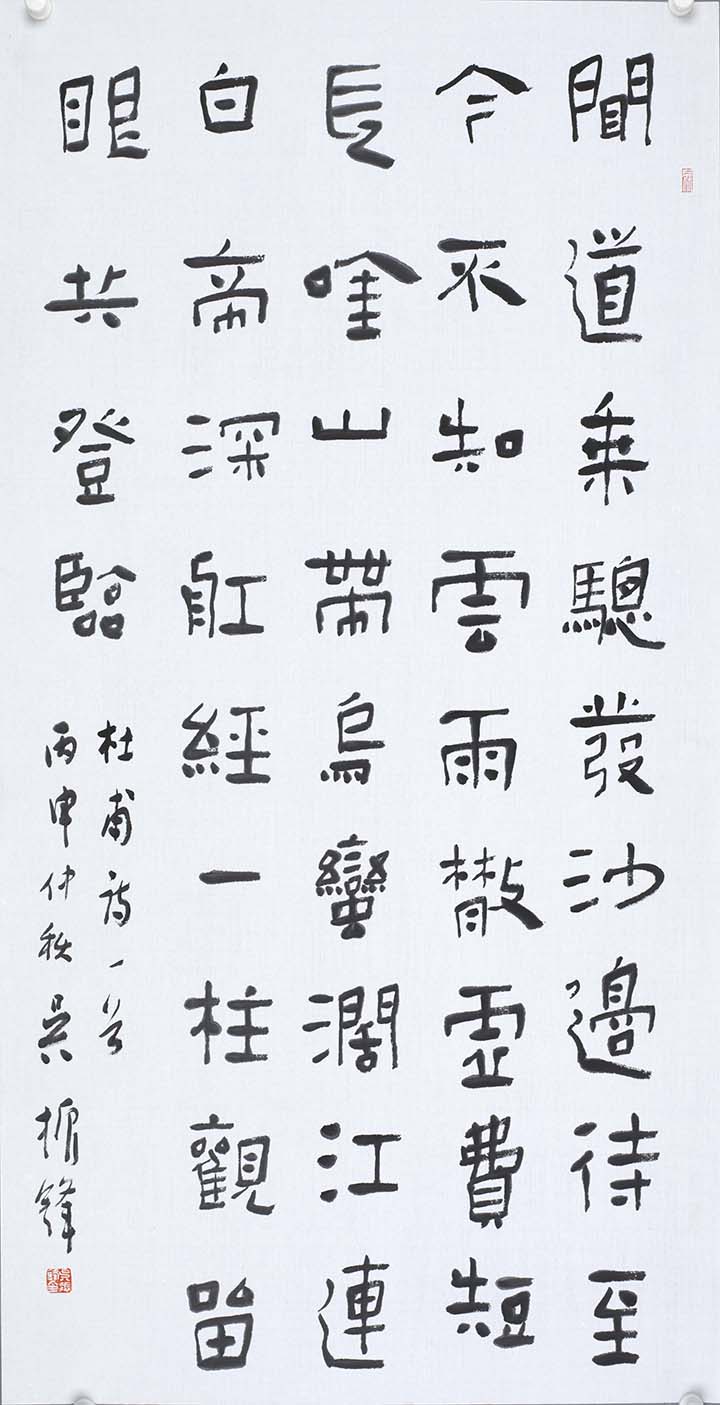 聞道乘驄發沙邊待至
今不知雲雨散虛費短
長唫山帶烏蠻濶江連
白帝深舡經一柱觀留
眼共登臨
杜甫詩一首
丙申仲秋吳振鋒